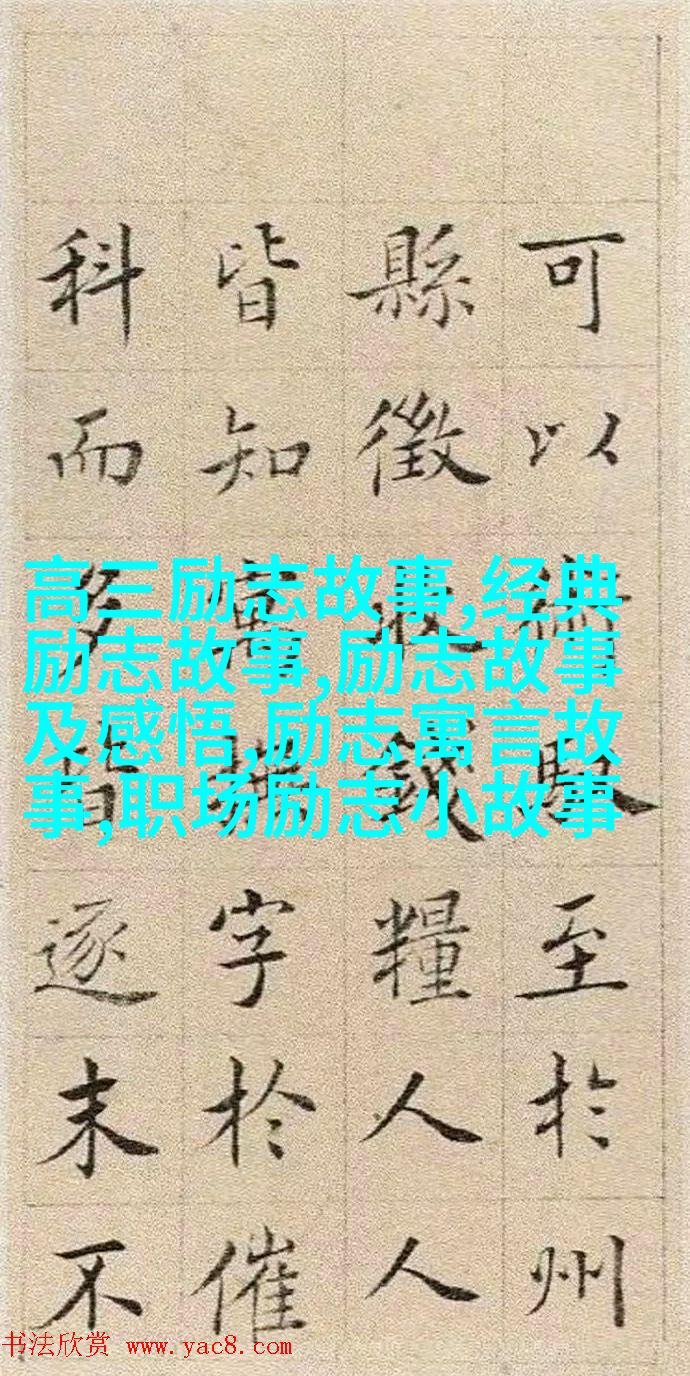 可以至於州
縣徵收錢糧人人
皆知萬字於催
科而多逐末不
高三励志故事,经典
励志故事,励志故事
及感悟,励志寓言故
事,职场励志小故事
书法欣赏 www.yac8.com